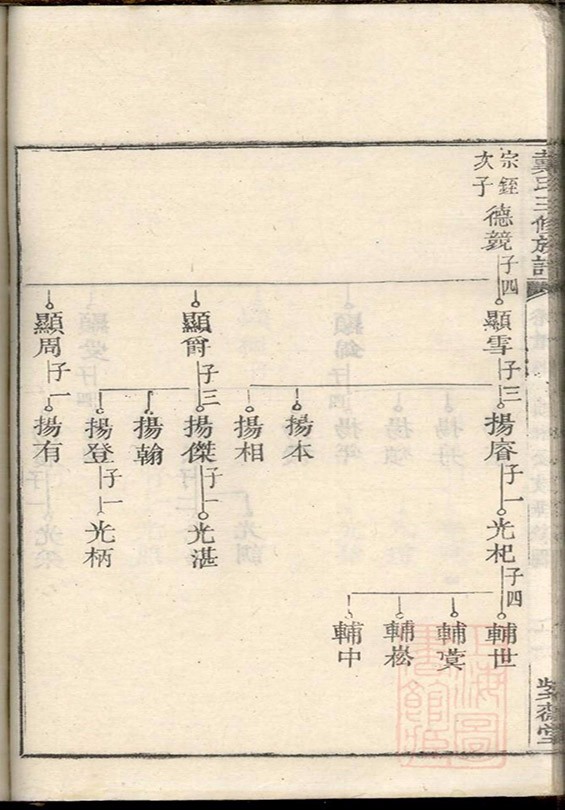 戴氏三修族譜
紫薇堂
宗銍次子
德競
子四
顯雪
子三
揚睿
子一
光杞
子四
輔世
輔蓂
輔崧
輔中
揚本
揚相
顯爵
子三
揚傑
子一
光湛
揚翰
揚登
子一
光柄
顯周
子一
揚有
上海圖書館藏